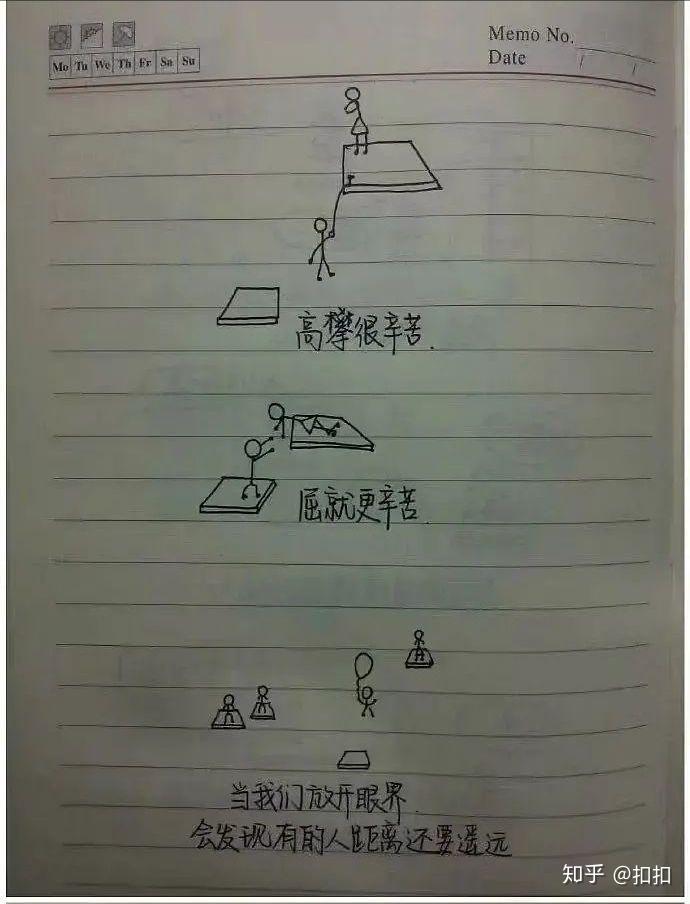 Memo No.
Date
Mo Tu We Th Fr Sa Su
高攀很辛苦.
屈就更辛苦.
当我们放开眼界
会发现有的人距离还要遥远
知乎 @扣扣